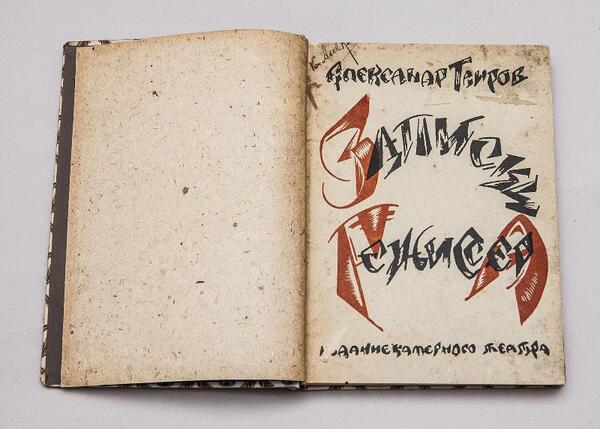 Александр Таиров
Записки
Режиссера
издание камерного театра